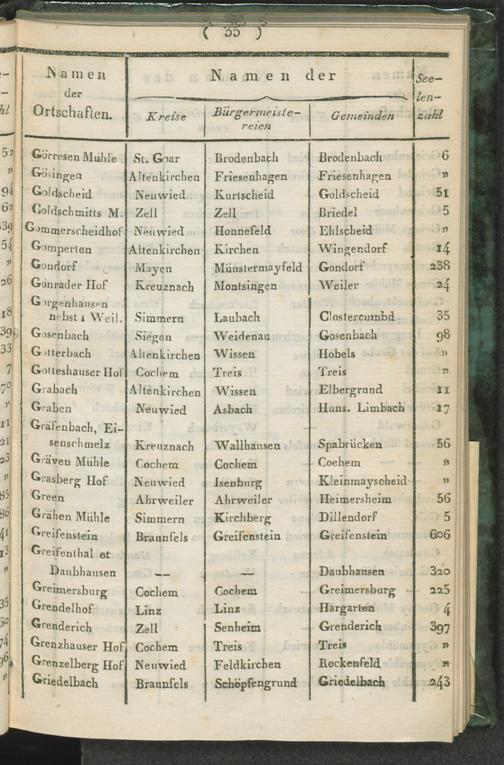 ( 35 )
Namen der Ortschaften. | Namen der | Seelenzahl
Kreise | Bürgermeistereien | Gemeinden
Görresen Mühle St. Goar Brodenbach Brodenbach 6
Gösingen Altenkirchen Friesenhagen Friesenhagen "
Goldscheid Neuwied Kurtscheid Goldscheid 51
Goldschmitts M. Zell Zell Briedel 5
Gommerscheidhof Neuwied Honnefeld Ehlscheid "
Gomperten Altenkirchen Kirchen Wingendorf 14
Gondorf Mayen Münstermayfeld Gondorf 238
Gonrader Hof Kreuznach Montsingen Weiler 24
Gorgenhausen
nebst 1 Weil. Simmern Laubach Clostercumbd 35
Gosenbach Siegen Weidenau Gosenbach 98
Gotterbach Altenkirchen Wissen Hobels "
Gotteshauser Hof Cochem Treis Treis "
Grabach Altenkirchen Wissen Elbergrund 11
Graben Neuwied Asbach Huns. Limbach 17
Gräfenbach, Ei-
senschmelz Kreuznach Wallhausen Spabrücken 56
Gräven Mühle Cochem Cochem Cochem "
Grasberg Hof Neuwied Isenburg Kleinmayscheid "
Green Ahrweiler Ahrweiler Heimersheim 56
Grähen Mühle Simmern Kirchberg Dillendorf 5
Greifenstein Braunfels Greifenstein Greifenstein 606
Greifenthal et
Daubhausen — — — — Daubhausen 320
Greimersburg Cochem Cochem Greimersburg 225
Grendelhof Linz Linz Hargarten 4
Grenderich Zell Senheim Grenderich 397
Grenzhauser Hof Cochem Treis Treis "
Grenzelberg Hof Neuwied Feldkirchen Rockenfeld "
Griedelbach Braunfels Schöpfengrund Griedelbach 243